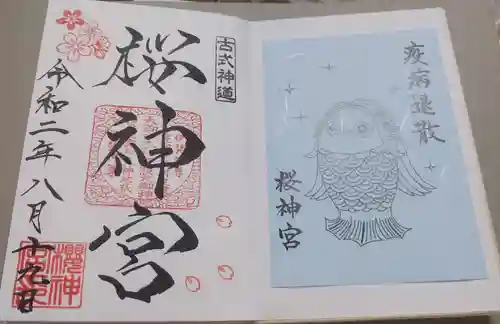 古式神道
桜神宮
令和二年八月十九日
櫻神
疫病退散
桜神宮